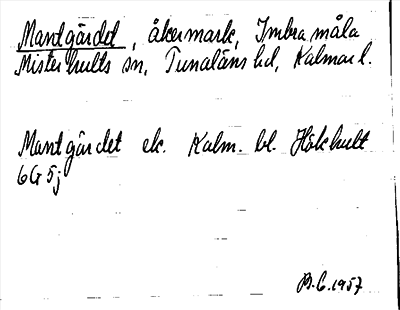 Mantgärdet, åkermark, Imbramåla
Misterhults sn, Tunaläns hd, Kalmar l.
Mantgärdet ek. Kalm. bl. Hökhult
6G 5j
B.C. 1957